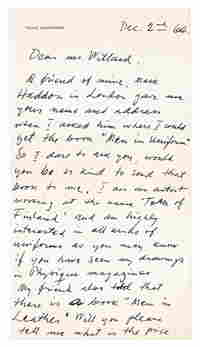 Dec. 2nd 64.
Dear mr Willard.
A friend of mine,
Haddon in London gave me
your name and address
when I asked him where I could
get the book "Men in Uniform"
So I dare to ask you, would
you be so kind to send that
book to me. I am an artist
working at the name 'Tom of
Finland' and am highly
interested in all kinds of
uniforms as you may know
if you have seen my drawings
in Physique magazines
My friend also told that
there is a book "Men in
Leather" Will you please
tell me what is the price